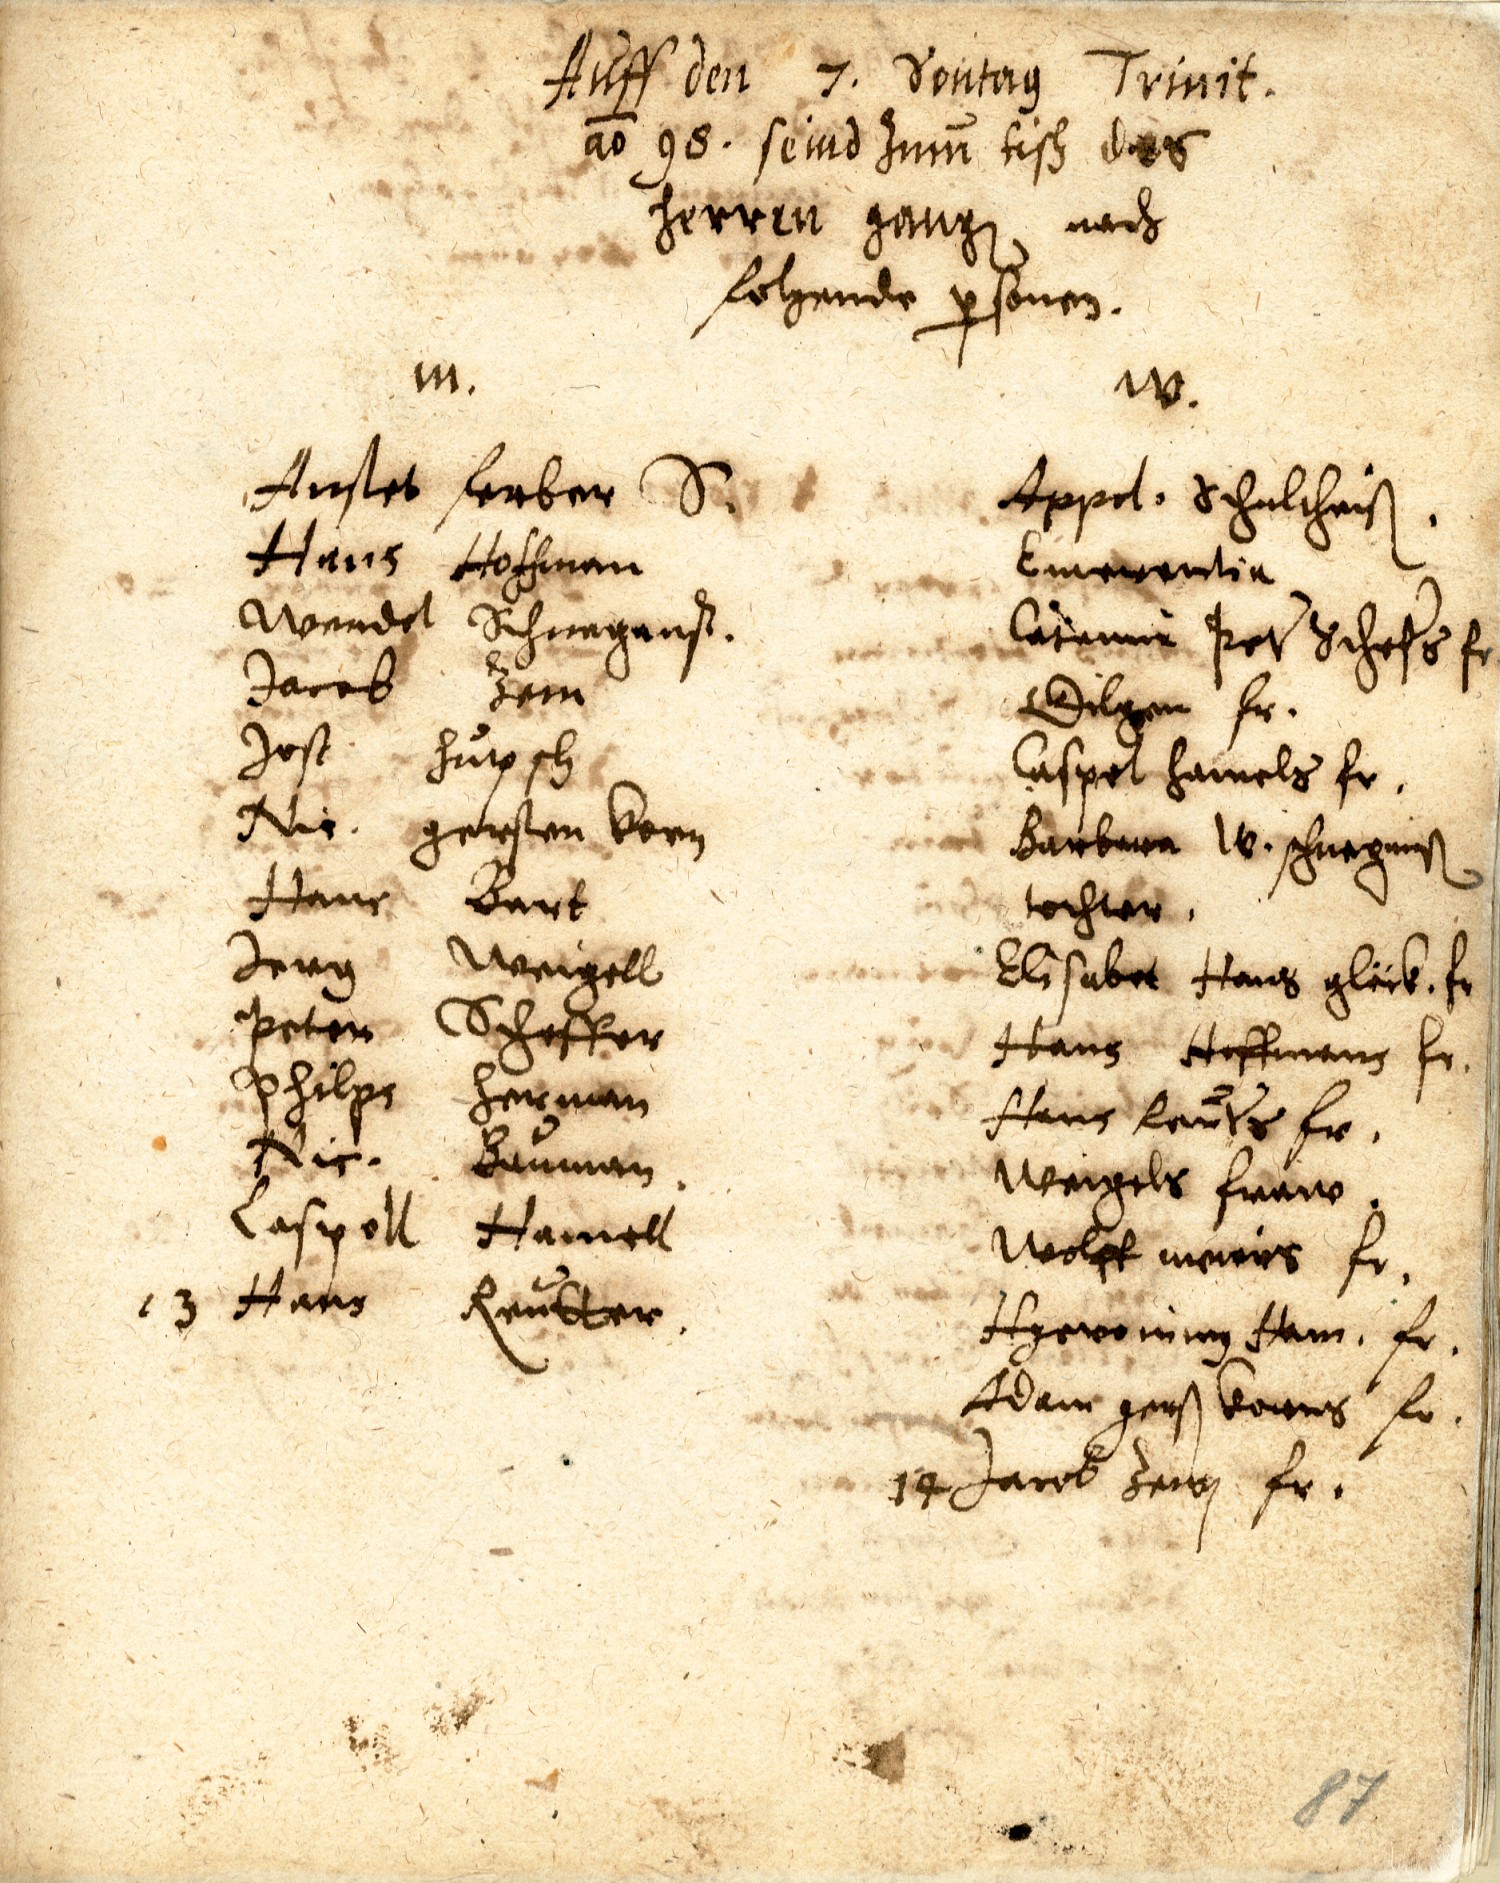 Auff den 7. Sontag Trinit.
ao 98. seind zum tisch des
herren gangen nach
folgende personen.
m.
Anstet ferber S.
Hans Hoffman
Wendel Schnegans.
Jacob Zein
Jost hüpsch
Nic. gersten korn
Hans Bart
Jerg Weigell
Peter Scheffer
Philps herman
Nic. Bauman.
Caspell Hamell
13 Hans Reutter.
w.
Appol. Schultheiß.
Emerentia
Caterin Peter Schefers fr
Ottilgen fr.
Caspel hamels fr.
Barbara W. schnegans
tochter.
Elisabet Hans glück. fr
Hans Hoffmans fr.
Hans fr.
Weigels fraw.
Wolff meiers fr.
Ham. fr.
Adam gerst korns fr.
14 Jacob Zein fr.
87